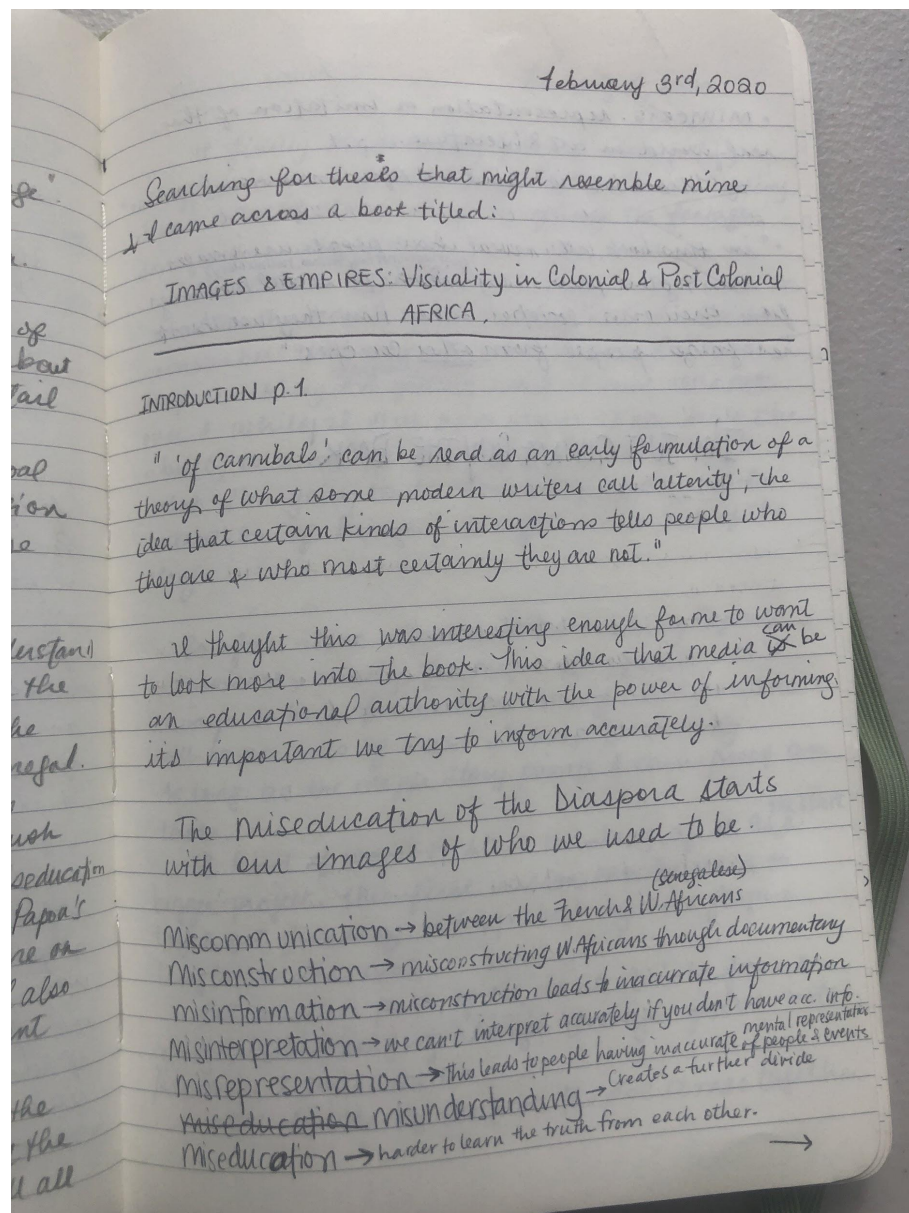 february 3rd, 2020
Searching for thesis that might resemble mine
& I came across a book titled:
IMAGES & EMPIRES: Visuality in Colonial & Post Colonial
AFRICA.
INTRODUCTION p.1.
" 'of cannibals', can be read as an early formulation of a
theory of what some modern writers call 'alterity', the
idea that certain kinds of interactions tells people who
they are & who most certainly they are not."
I thought this was interesting enough for me to want
to look more into the book. This idea that media can be
an educational authority with the power of informing.
its important we try to inform accurately.
The miseducation of the Diaspora starts
with our images of who we used to be.
(senegalese)
Miscommunication → between the French & W. Africans
Misconstruction → misconstructing W. Africans through documentary
misinformation → misconstruction leads to inaccurate information
misinterpretation → we can't interpret accurately if you don't have acc. info.
misrepresentation → this leads to people having inaccurate mental representation of people & events
miseducation misunderstanding → creates a further divide
miseducation → harder to learn the truth from each other.
→
ge".
of
bout
tail
ion
the
he
negal.
Papa's
also
the
the
all